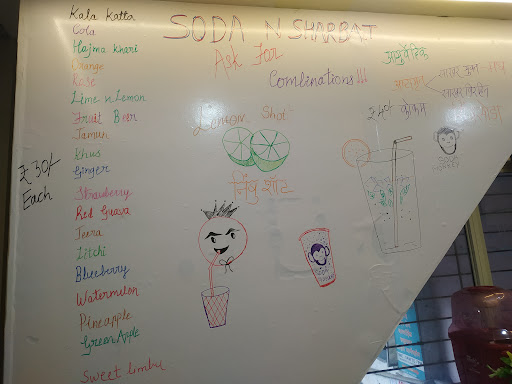 Kala Katta
Cola
Hajma khari
Orange
Rose
Lime n Lemon
Fruit Beer
Jamun
Khus
Ginger
Strawberry
Red Guava
Jeera
Litchi
Blueberry
Watermelon
Pineapple
Green Apple
Sweet Limbu
₹30/-
Each
SODA N SHARBAT
Ask For
Combinations!!!
Lemon Shot
निंबु शॉट
आयुर्वेदिक
₹40/- कोकम
SODA
MONKEY